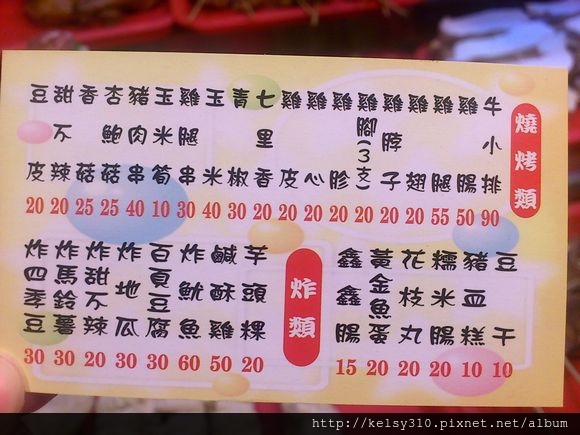 燒烤類
牛小排 90
雞腸 50
雞腿 55
雞翅 20
雞脖子 20
雞腳(3支) 20
雞胗 20
雞心 20
雞皮 20
七里香 20
青椒 30
玉米 40
雞腿串 30
玉米筍 10
豬肉串 40
杏鮑菇 25
香菇 25
甜不辣 20
豆皮 20
豆干 10
豬血糕 10
糯米腸 20
花枝丸 20
黃金魚蛋 20
鑫鑫腸 15
炸類
芋頭粿 20
鹹酥雞 50
炸魷魚 60
百頁豆腐 30
炸地瓜 30
炸甜不辣 20
炸馬鈴薯 30
炸四季豆 30
http://kelsy310.pixnet.net/album